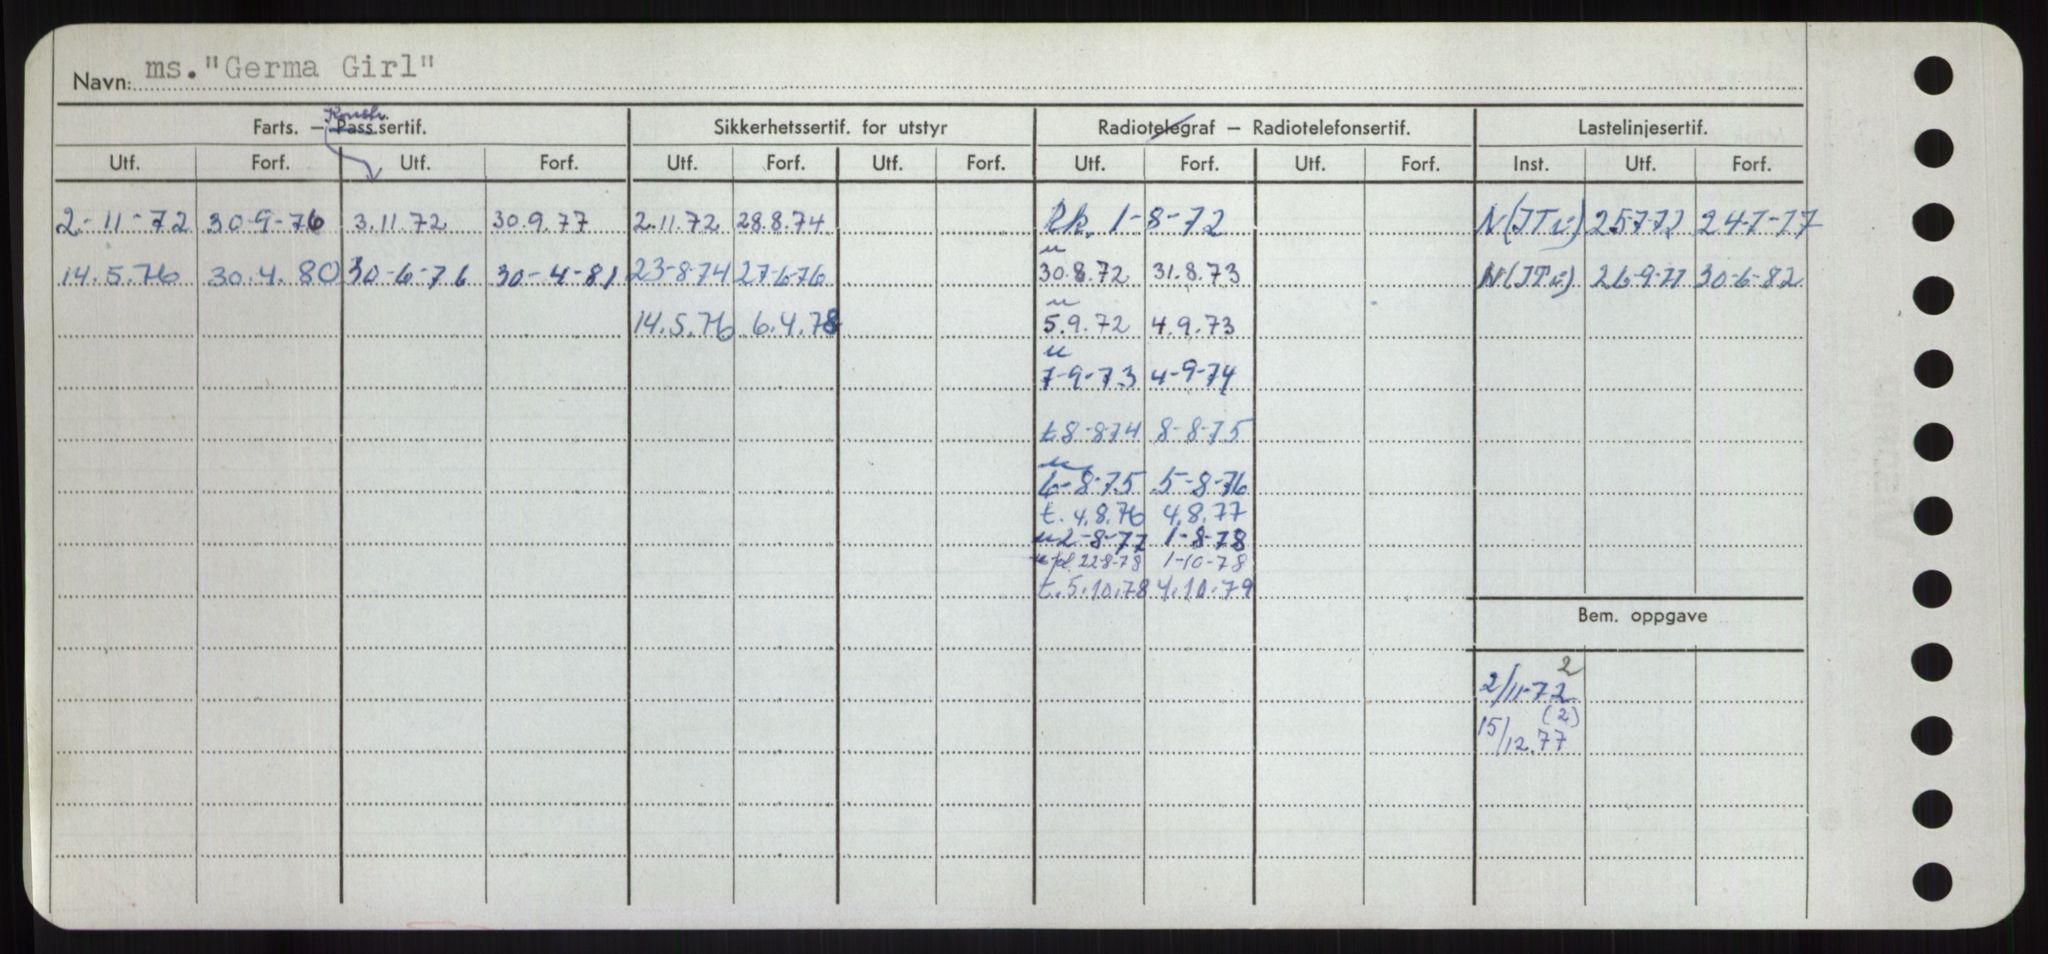 Navn: ms. "Germa Girl"
Konstr.
Farts. — Pass.sertif. Sikkerhetssertif. for utstyr Radiotelegraf — Radiotelefonsertif. Lastelinjesertif.
Utf. Forf. Utf. Forf. Utf. Forf. Utf. Forf. Utf. Forf. Utf. Forf. Inst. Utf. Forf.
2-11-72 30-9-76 3.11.72 30.9.77 2.11.72 28.8.74 Rk. 1-8-72 N(ITu) 25-7-72 24-7-77
u
14.5.76 30.4.80 30-6-76 30-4-81 23-8-74 27-6-76 30.8.72 31.8.73 N(ITu) 26-9-77 30-6-82
u
14.5.76 6.4.78 5.9.72 4.9.73
u
7-9-73 4-9-74
t 8-8-74 8-8-75
u
6-8-75 5-8-76
t. 4.8.76 4.8.77
u 2-8-77 1-8-78
22-8-78 1-10-78
t. 5.10.78 4.10.79
Bem. oppgave
2
2/11-72
(2)
15/12.77